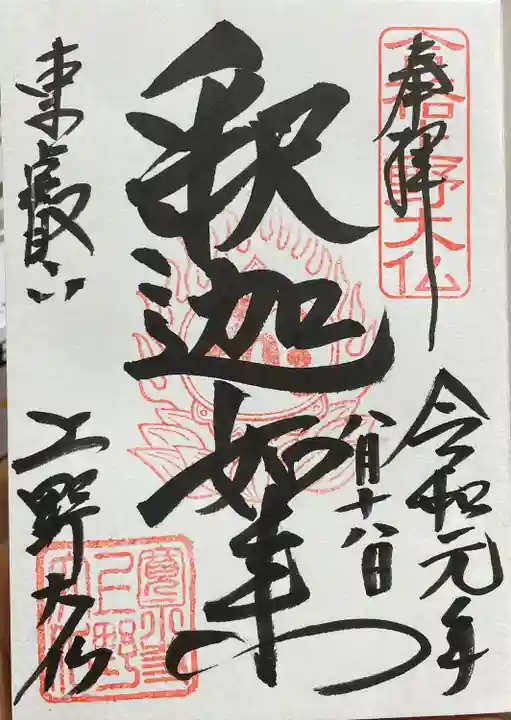 奉拝
令和元年
八月十八日
釈迦如来
東叡山
上野大仏